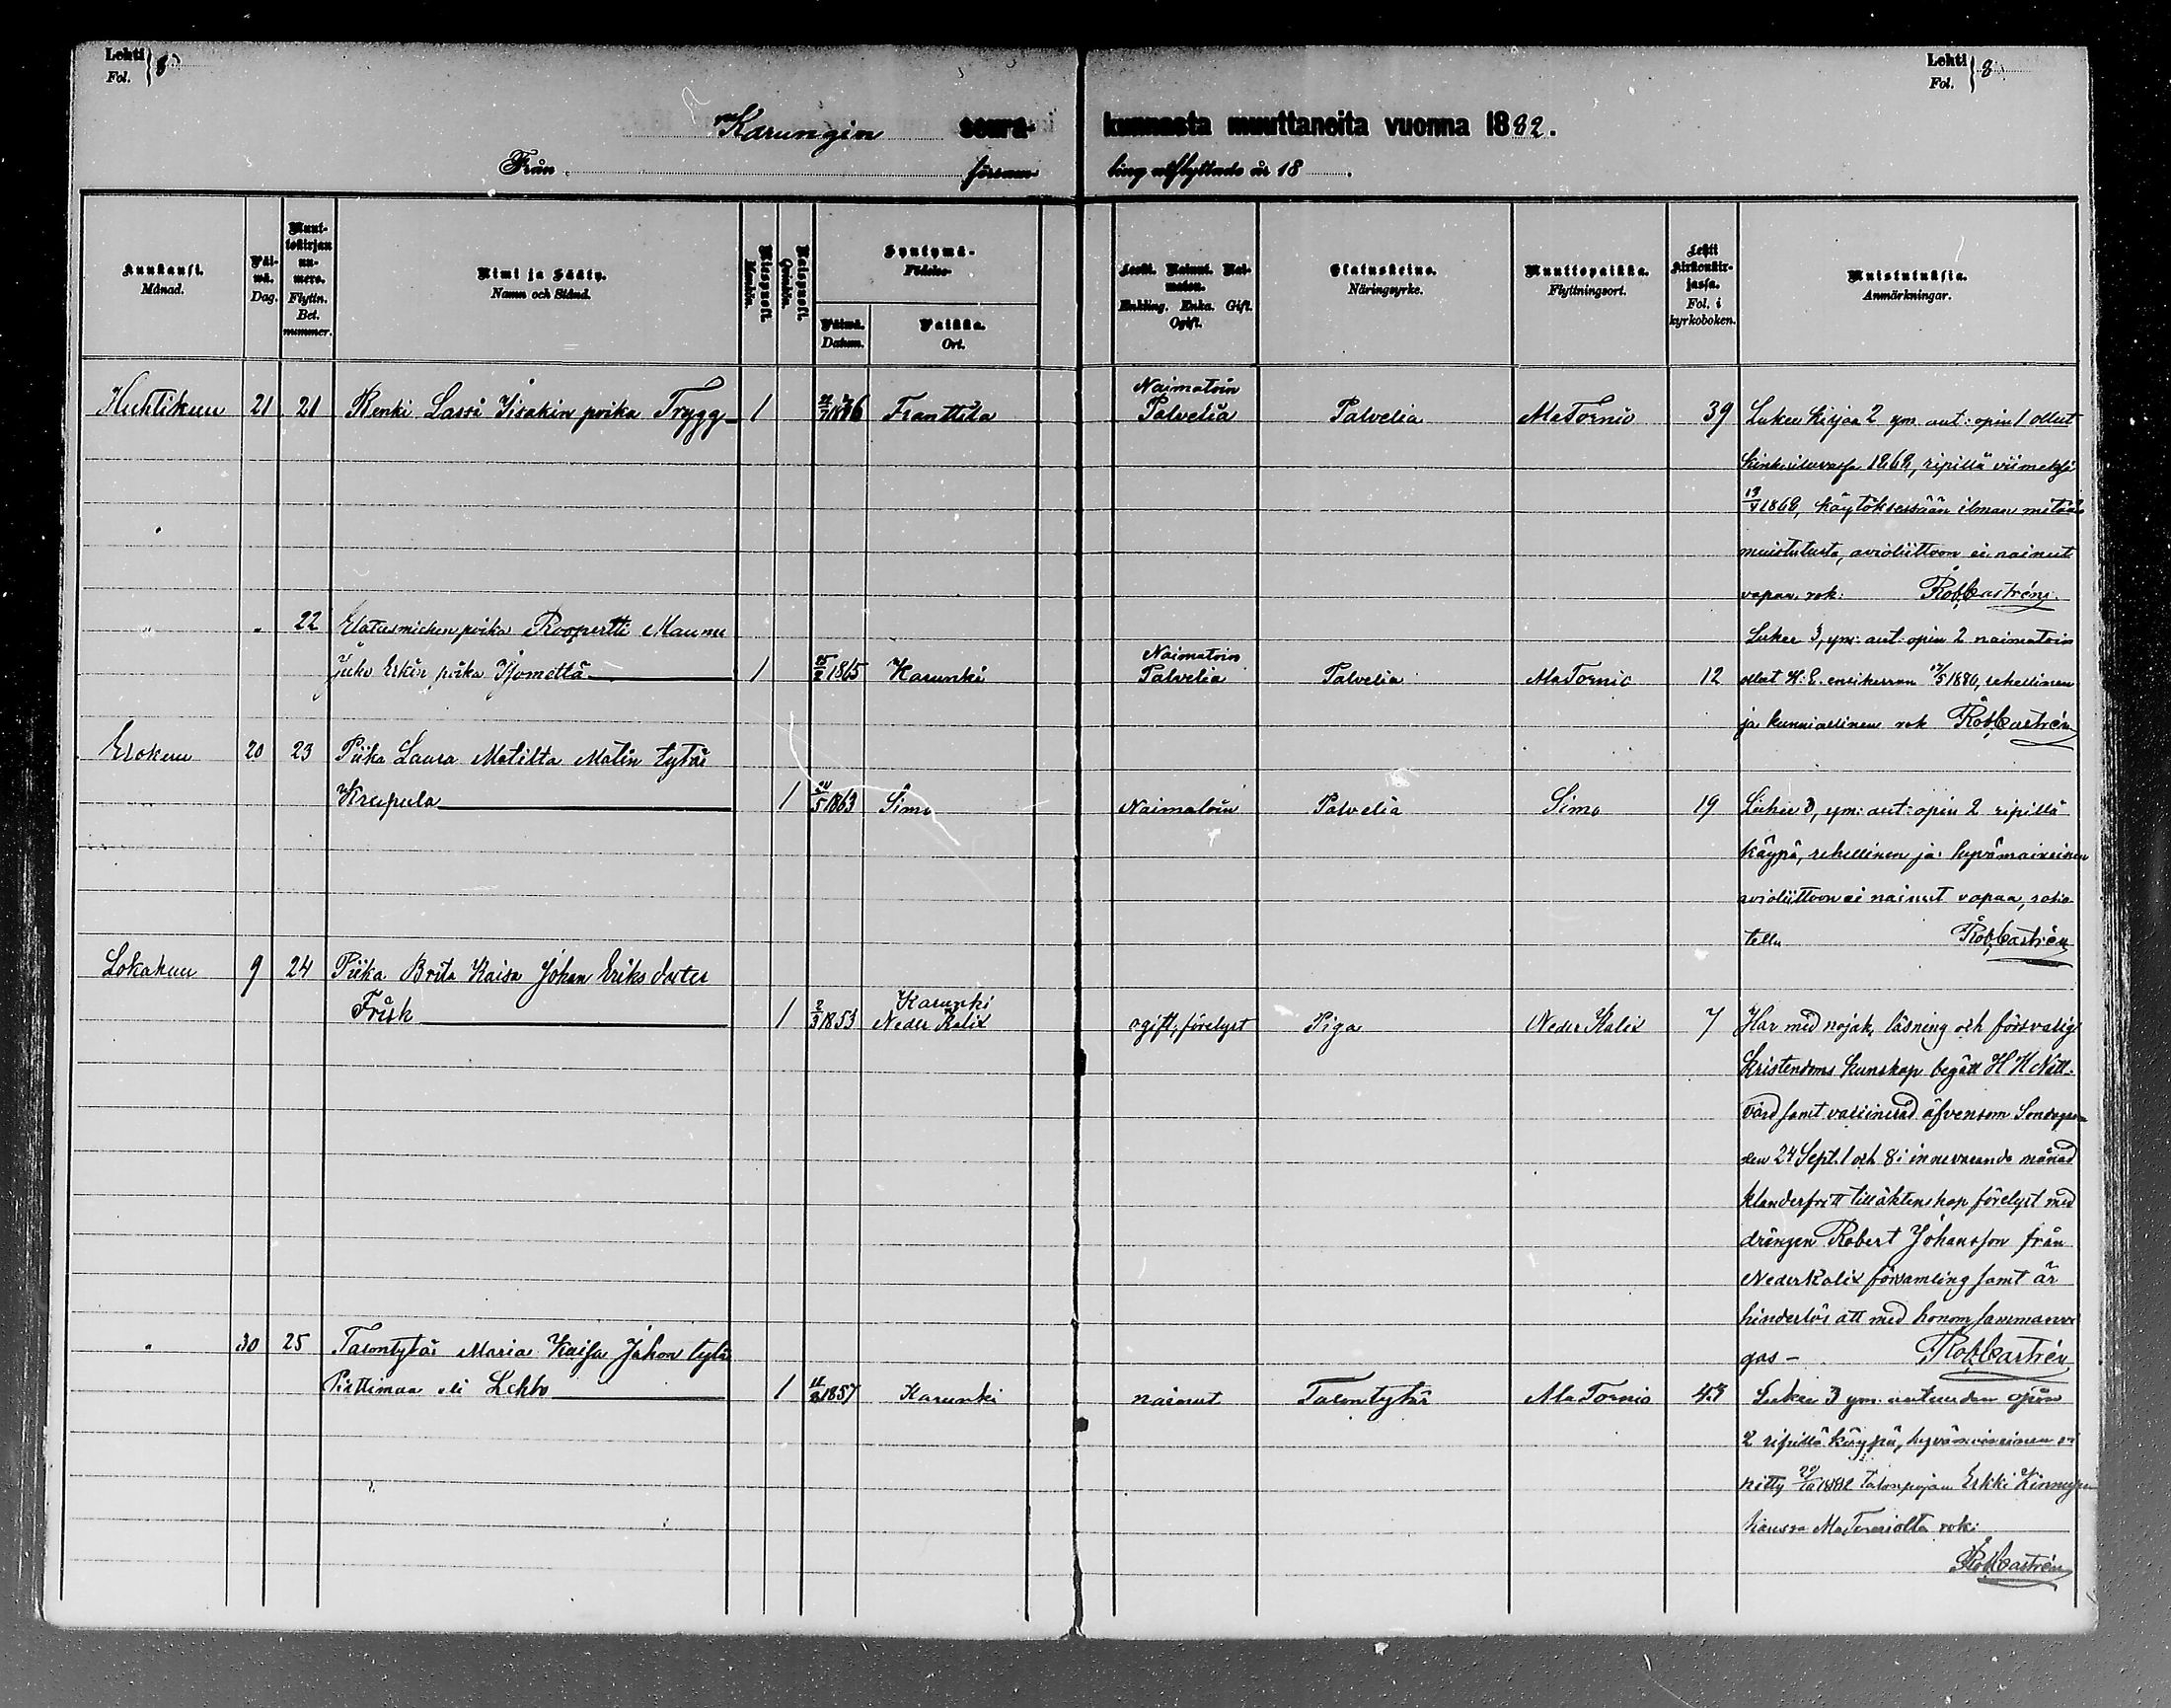 Lehti Fol. 8
Lehti Fol. 8
Karungin seura- kunnasta muuttaneita vuonna 1882.
Från församling utflyttade år 18 .
Kuukausi. Månad.
Päiwä. Dag.
Muuttokirjan numero. Flyttn. Bet. nummer.
Nimi ja Sääty. Namn och Stånd.
Miespuoli. Mankön.
Naispuoli. Qvinkön.
Syntymä- Födelse-
Päiwä. Datum.
Paikka. Ort.
Leski. Nainut. Naimaton. Enkling. Enka. Gift. Ogift.
Elatuskeino. Näringsyrke.
Muuttopaikka. Flyttningsort.
Lehti kirkonkirjassa. Fol. i kyrkoboken.
Muistutuksia. Anmärkningar.
Naimatoin
Huhtikuu 21 21 Renki Lassi Iisakin poika Trygg 1 Franttila Palvelia Palvelia AlaTornio 39 Lukee kirjaa 2 ym. aut: opin 1 ollut
1868, ripillä viimeksi
1868, käytöksessään ilman mitään
muistutusta, avioliittoon ei nainut
vapaa. rok: RobCastrén
" " 22 Elatusmiehen poika Roopertti Maunu Lukee 3, ym: aut: opin 2 naimatoin
Naimatoin
Juho Erkin poika 1 1865 Karunki Palvelia Palvelia AlaTornio 12 ollut H: E. ensikerran 1880, rehellinen
ja kunniallinen rok RobCastrén
Elokuu 20 23 Piika Laura Matilta Matin tytär
Krupula 1 1863 Simo Naimatoin Palvelia Simo 19 Lukee 3, ym: aut: opin 2 ripillä
käypä, rehellinen ja hyvämaineinen
avioliittoon ei nainut vapaa, roko
tettu RobCastrén
Lokakuu 9 24 Piika Brita Kaisa Johan Eriks doter
Karunki
Frisk 1 2/3 1853 Neder Kalix ogift, förelyst Piga Neder Kalix 7 Har med nojak, läsning och försvarlig
Kristendoms kunskap begått H H Natt-
vard samt vaccinerad äfvensom Söndagarna
den 24 Sept. 1 och 8 i innevarande månad
klanderfritt till äktenskap förelyst med
drängen Robert Johansson från
NederKalix församling samt är
hinderlös att med honom sammanvi
gas – RobCastrén
" 30 25 Talontytär Maria Kaisa Juhon tytär
Pirttimaa eli Lehto 1 1857 Karunki nainut Talontytär AlaTornio 43 Lukee 3 ym: autuuden opin
2 ripillä käypä, hyvämaineinen vi
hitty 1882 Talonpojan Erkki
kanssa AlaTorniolta rok:
RobCastrén